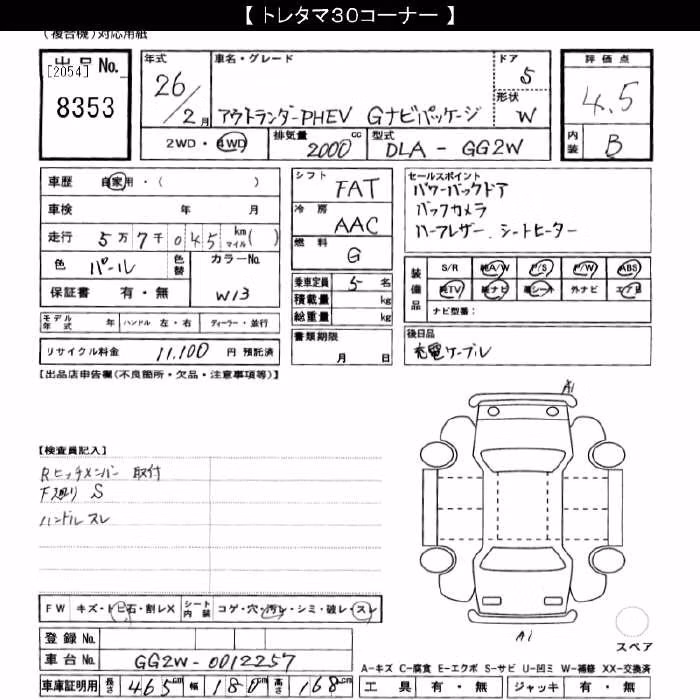 【 トレタマ30コーナー 】
(複合機)対応用紙
出品No.
[2054]
8353
年式
26/2月
車名・グレード
アウトランダーPHEV Gナビパッケージ
ドア
5
形状
W
評価点
4.5
内装
B
2WD・4WD
排気量
2000cc
型式
DLA - GG2W
車歴 自家用・( )
車検 年 月
走行 5万7千045km マイル( )
色 パール
色替
カラーNo.
W13
保証書 有・無
モデル年式 年 ハンドル 左・右 ディーラー・並行
リサイクル料金 11,100 円 預託済
シフト FAT
冷房 AAC
燃料 G
乗車定員 5名
積載量 kg
総重量 kg
書類期限
月 日
セールスポイント
パワーバックドア
バックカメラ
ハーフレザー、シートヒーター
装備品
S/R 純A/W P/S P/W ABS
純TV 純ナビ 革シート 外ナビ エアB
ナビ型番:
後日品
充電ケーブル
【出品店申告欄(不良箇所・欠品・注意事項等)】
【検査員記入】
Rヒッチメンバー 取付
F廻り S
ハンドル スレ
A1
A1
スペア
FW キズ・トビ石・割レX シート内装 コゲ・穴・汚レ・シミ・破レ・スレ
登録 No.
車台 No. GG2W-0012257
車庫証明用 長さ 465cm 幅 180cm 高さ 168cm
A-キズ C-腐食 E-エクボ S-サビ U-凹ミ W-補修 XX-交換済
工具 有・無 ジャッキ 有・無